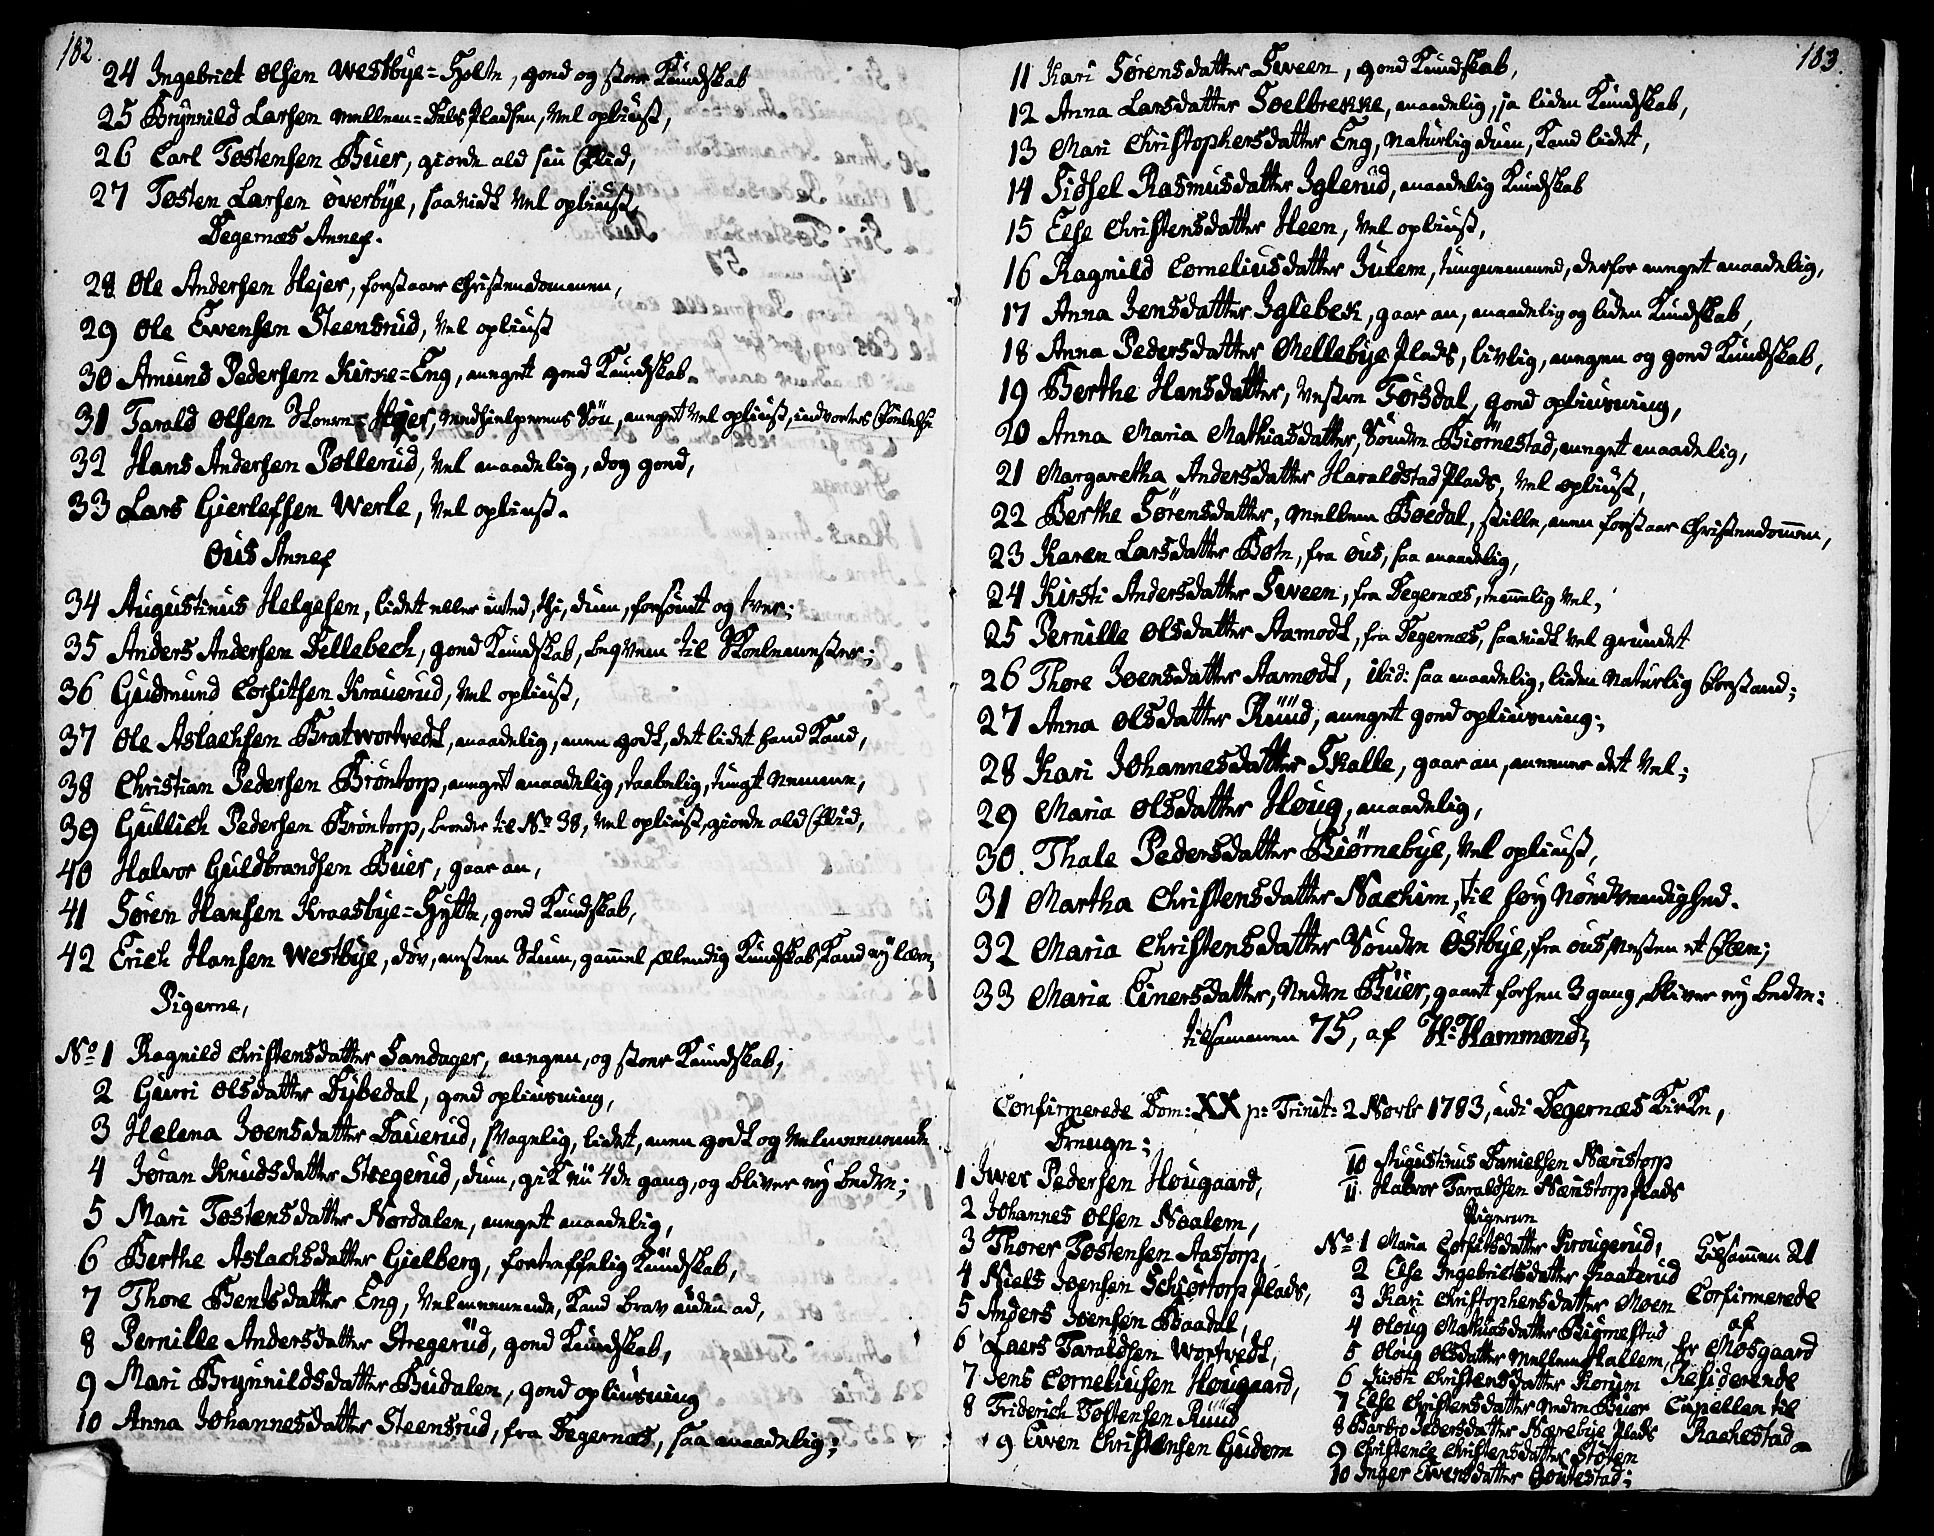 182.
24 Ingebriet Olsen Westbye=Holtn, goed og stoer Kundskab
25 Brynnild Larsen Mellem=Bøes Pladsen, vel opliust,
26 Carl Tostensen Buer, giorde ald sin Flid,
27 Tosten Larsen Øverbye, saavidt vel opliust,
Degernæs Annex.
28 Ole Andersen Hejer, forstaaer Christendommen,
29 Ole Ewensen Steensrud, vel opliust
30 Amund Pedersen Kirke=Eng, meget goed Kundskab.
31 Tarald Olsen Skoern=Hejer, Medhielperens Søn, meget vel opliust, indvortes Følelse
32 Hans Andersen Pøllerud, vel maadelig, dog goed,
33 Lars Gierlefsen Werle, vel opliust.
Ous Annex
34 Augustinus Helgesen, lidet eller inted, thi, dum, forsømt og tver;
35 Anders Andersen Dellebech, goed Kundskab, beqvem til Skolemester;
36 Gudmund Corfitsen Krauerud, vel opliust,
37 Ole Aslachsen Bratwortvedt, maadelig, men godt, det lidet hand Kand,
38 Christian Pedersen Brøntorp, meget maadelig, taabelig, tungt Nemme,
39 Gullich Pedersen Brøntorp, broder til No 38, vel opliust, giorde ald Flid,
40 Halvor Guldbrandsen Buer, gaar an,
41 Søren Hansen Kraesbye=Hytte, goed Kundskab,
42 Erich Hansen Westbye, døv, næsten stum, gammel, elendig Kundskab, Kand ey lære,
Pigerne,
No 1 Ragnild Christensdatter Sandager, megen, og stoer Kundskab,
2 Gurri Olsdatter Dybedal, goed opliusning,
3 Helena Joensdatter Dauerud, svagelig, lidet, men godt og velmeenende
4 Jøran Knudsdatter Stregerud, dum, gik nu 4de gang, og bliver ey bedre;
5 Mari Tostensdatter Nordalen, meget maadelig,
6 Berthe Aslachsdatter Gielberg, fortreffelig Kundskab,
7 Thore Bentsdatter Eng, velmeenende, Kand brav uden ad,
8 Pernille Andersdatter Stregerud, goed Kundskab,
9 Mari Brynnildsdatter Budalen, goed opliusning
10 Anna Johannesdatter Steensrud, fra Degernæs, saa maadelig;
183.
11 Kari Sørensdatter Sween, goed Kundskab,
12 Anna Larsdatter Soelbrekke, maadelig, ja liden Kundskab,
13 Mari Christophersdatter Eng, naturlig dum, Kand lidet,
14 Sidsel Rasmusdatter Iglerud, maadelig Kundskab
15 Else Christensdatter Heen, vel opliust,
16 Ragnild Corneliusdatter Julem, tungnemmed, derfor meget maadelig,
17 Anna Jensdatter Iglebek, gaar an, maadelig og liden Kundskab,
18 Anna Pedersdatter Mellebye Plads, livlig, megen og goed Kundskab,
19 Berthe Hansdatter, Vestre Torsdal, goed opliusning,
20 Anna Maria Mathiasdatter, Søndre Biørnestad, meget maadelig,
21 Margaretha Andersdatter Haraldstad Plads, vel opliust,
22 Berthe Sørensdatter, Mellem Bøedal, stille, men forstaar Christendommen,
23 Karen Larsdatter Botn, fra Ous, saa maadelig,
24 Kirsti Andersdatter Sween, fra Degernæs, temmelig vel,
25 Pernille Olsdatter Aamodt, fra Degernæs, saavidt vel grundet
26 Thore Joensdatter Aamodt, ibid: saa maadelig, liden naturlig Forstand;
27 Anna Olsdatter Ruud, meget goed opliusning;
28 Kari Johannesdatter Skalle, gaar an, meener det vel;
29 Maria Olsdatter Houg, maadelig,
30. Thale Pedersdatter Biørnebye, vel opliust,
31 Martha Christensdatter Nachim, til høy Nødvendighed.
32 Maria Christensdatter Søndre Østbye, fra Ous, næsten et Fæ;
33 Maria Einersdatter, Nedre Buer, gaaet forhen 3 gang, bliver ey bedre:
tilsammen 75, af Hr Hammond,
Confirmerede Dom: XX p: Trinit: 2 Novbr 1783, udi Degernæs Kirke,
Drenge;
1 Iwer Pedersen Hougaard,
2 Johannes Olsen Noalem,
3 Thorer Tostensen Aastorp,
4 Niels Joensen Schiørtorp Plads,
5 Anders Joensen Baadal,
6 Laers Taraldsen Wortvedt,
7 Jens Corneliusen Hougaard,
8 Friderich Tostensen Ruud
9 Ewen Christensen Gudem
10 Augustinus Danielsen Næristorp
11 Halvor Taraldsen Næristorp Plads
Pigerne
No 1 Maria Corfitsdatter Krougerud,
2 Else Ingebrietsdatter Kaaterud
3 Kari Christophersdatter Moen
4 Oloug Mathiasdatter Biørnestad
5 Oloug Olsdatter Mellem Hallem,
6 Kirsti Christensdatter Korum
7 Else Christensdatter Nedre Buer
8 Barbro Pedersdatter Nærebye Plads
9 Christence Christensdatter Stoten
10 Inger Ewensdatter Goutestad;
Tilsammen 21
Confirmerede
af
Hr Mosgaard
Residerende
Capellan til
Rachestad.